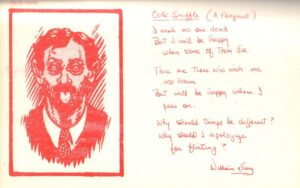 Cute Snuffle (A Fangword)
I wish no one dead
But I will be happy
when some of them die
There are Those who wish me
no harm
But will be happy when I
pass on.
Why should things be different?
Why should I apologize
for flirting?
William